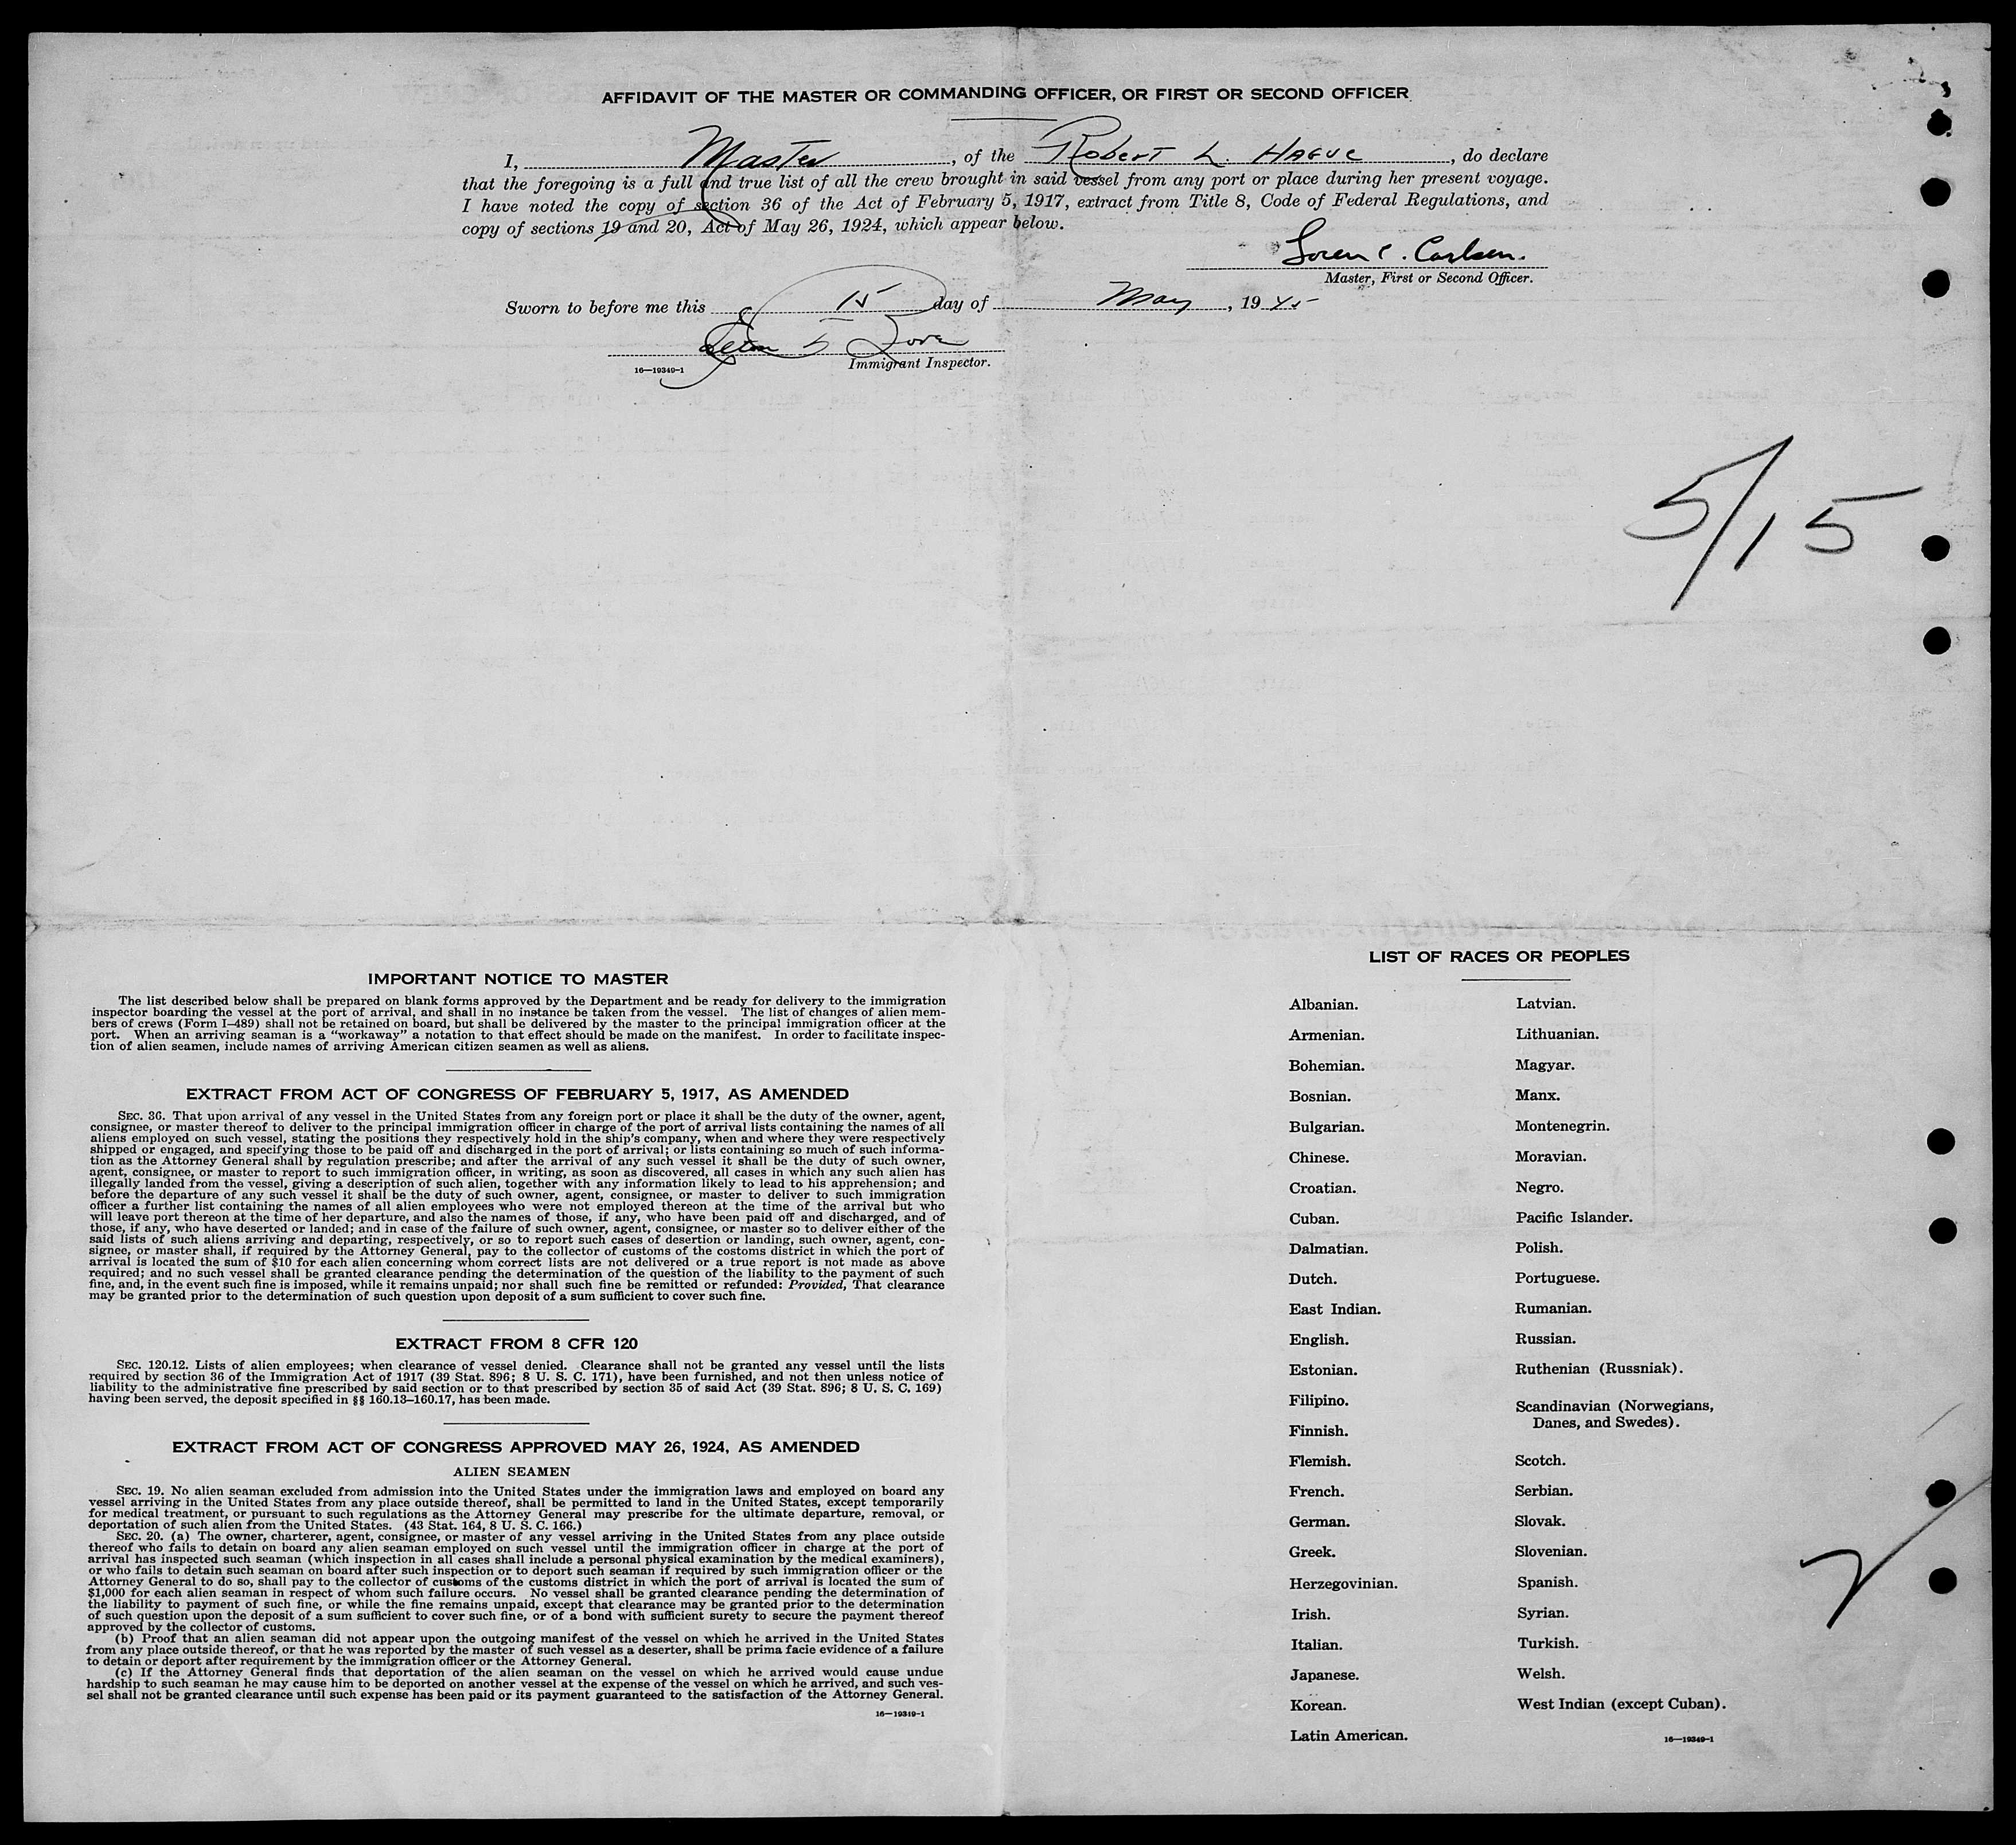 AFFIDAVIT OF THE MASTER OR COMMANDING OFFICER, OR FIRST OR SECOND OFFICER
I, Master, of the Robert L. Hague, do declare
that the foregoing is a full and true list of all the crew brought in said vessel from any port or place during her present voyage.
I have noted the copy of section 36 of the Act of February 5, 1917, extract from Title 8, Code of Federal Regulations, and
copy of sections 19 and 20, Act of May 26, 1924, which appear below.
Loren C. Carlsen.
Master, First or Second Officer.
Sworn to before me this 15 day of May, 1945
Immigrant Inspector.
16—19349-1
5/15
IMPORTANT NOTICE TO MASTER
The list described below shall be prepared on blank forms approved by the Department and be ready for delivery to the immigration
inspector boarding the vessel at the port of arrival, and shall in no instance be taken from the vessel. The list of changes of alien mem-
bers of crews (Form I-489) shall not be retained on board, but shall be delivered by the master to the principal immigration officer at the
port. When an arriving seaman is a “workaway” a notation to that effect should be made on the manifest. In order to facilitate inspec-
tion of alien seamen, include names of arriving American citizen seamen as well as aliens.
EXTRACT FROM ACT OF CONGRESS OF FEBRUARY 5, 1917, AS AMENDED
SEC. 36. That upon arrival of any vessel in the United States from any foreign port or place it shall be the duty of the owner, agent,
consignee, or master thereof to deliver to the principal immigration officer in charge of the port of arrival lists containing the names of all
aliens employed on such vessel, stating the positions they respectively hold in the ship's company, when and where they were respectively
shipped or engaged, and specifying those to be paid off and discharged in the port of arrival; or lists containing so much of such informa-
tion as the Attorney General shall by regulation prescribe; and after the arrival of any such vessel it shall be the duty of such owner,
agent, consignee, or master to report to such immigration officer, in writing, as soon as discovered, all cases in which any such alien has
illegally landed from the vessel, giving a description of such alien, together with any information likely to lead to his apprehension; and
before the departure of any such vessel it shall be the duty of such owner, agent, consignee, or master to deliver to such immigration
officer a further list containing the names of all alien employees who were not employed thereon at the time of the arrival but who
will leave port thereon at the time of her departure, and also the names of those, if any, who have been paid off and discharged, and of
those, if any, who have deserted or landed; and in case of the failure of such owner, agent, consignee, or master so to deliver either of the
said lists of such aliens arriving and departing, respectively, or so to report such cases of desertion or landing, such owner, agent, con-
signee, or master shall, if required by the Attorney General, pay to the collector of customs of the costoms district in which the port of
arrival is located the sum of $10 for each alien concerning whom correct lists are not delivered or a true report is not made as above
required; and no such vessel shall be granted clearance pending the determination of the question of the liability to the payment of such
fine, and, in the event such fine is imposed, while it remains unpaid; nor shall such fine be remitted or refunded: Provided, That clearance
may be granted prior to the determination of such question upon deposit of a sum sufficient to cover such fine.
EXTRACT FROM 8 CFR 120
SEC. 120.12. Lists of alien employees; when clearance of vessel denied. Clearance shall not be granted any vessel until the lists
required by section 36 of the Immigration Act of 1917 (39 Stat. 896; 8 U. S. C. 171), have been furnished, and not then unless notice of
liability to the administrative fine prescribed by said section or to that prescribed by section 35 of said Act (39 Stat. 896; 8 U. S. C. 169)
having been served, the deposit specified in §§ 160.13–160.17, has been made.
EXTRACT FROM ACT OF CONGRESS APPROVED MAY 26, 1924, AS AMENDED
ALIEN SEAMEN
SEC. 19. No alien seaman excluded from admission into the United States under the immigration laws and employed on board any
vessel arriving in the United States from any place outside thereof, shall be permitted to land in the United States, except temporarily
for medical treatment, or pursuant to such regulations as the Attorney General may prescribe for the ultimate departure, removal, or
deportation of such alien from the United States. (43 Stat. 164, 8 U. S. C. 166.)
SEC. 20. (a) The owner, charterer, agent, consignee, or master of any vessel arriving in the United States from any place outside
thereof who fails to detain on board any alien seaman employed on such vessel until the immigration officer in charge at the port of
arrival has inspected such seaman (which inspection in all cases shall include a personal physical examination by the medical examiners),
or who fails to detain such seaman on board after such inspection or to deport such seaman if required by such immigration officer or the
Attorney General to do so, shall pay to the collector of customs of the customs district in which the port of arrival is located the sum of
$1,000 for each alien seaman in respect of whom such failure occurs. No vessel shall be granted clearance pending the determination of
the liability to payment of such fine, or while the fine remains unpaid, except that clearance may be granted prior to the determination
of such question upon the deposit of a sum sufficient to cover such fine, or of a bond with sufficient surety to secure the payment thereof
approved by the collector of customs.
(b) Proof that an alien seaman did not appear upon the outgoing manifest of the vessel on which he arrived in the United States
from any place outside thereof, or that he was reported by the master of such vessel as a deserter, shall be prima facie evidence of a failure
to detain or deport after requirement by the immigration officer or the Attorney General.
(c) If the Attorney General finds that deportation of the alien seaman on the vessel on which he arrived would cause undue
hardship to such seaman he may cause him to be deported on another vessel at the expense of the vessel on which he arrived, and such ves-
sel shall not be granted clearance until such expense has been paid or its payment guaranteed to the satisfaction of the Attorney General.
16—19349-1
LIST OF RACES OR PEOPLES
Albanian.
Armenian.
Bohemian.
Bosnian.
Bulgarian.
Chinese.
Croatian.
Cuban.
Dalmatian.
Dutch.
East Indian.
English.
Estonian.
Filipino.
Finnish.
Flemish.
French.
German.
Greek.
Herzegovinian.
Irish.
Italian.
Japanese.
Korean.
Latin American.
Latvian.
Lithuanian.
Magyar.
Manx.
Montenegrin.
Moravian.
Negro.
Pacific Islander.
Polish.
Portuguese.
Rumanian.
Russian.
Ruthenian (Russniak).
Scandinavian (Norwegians,
Danes, and Swedes).
Scotch.
Serbian.
Slovak.
Slovenian.
Spanish.
Syrian.
Turkish.
Welsh.
West Indian (except Cuban).
16—19349-1